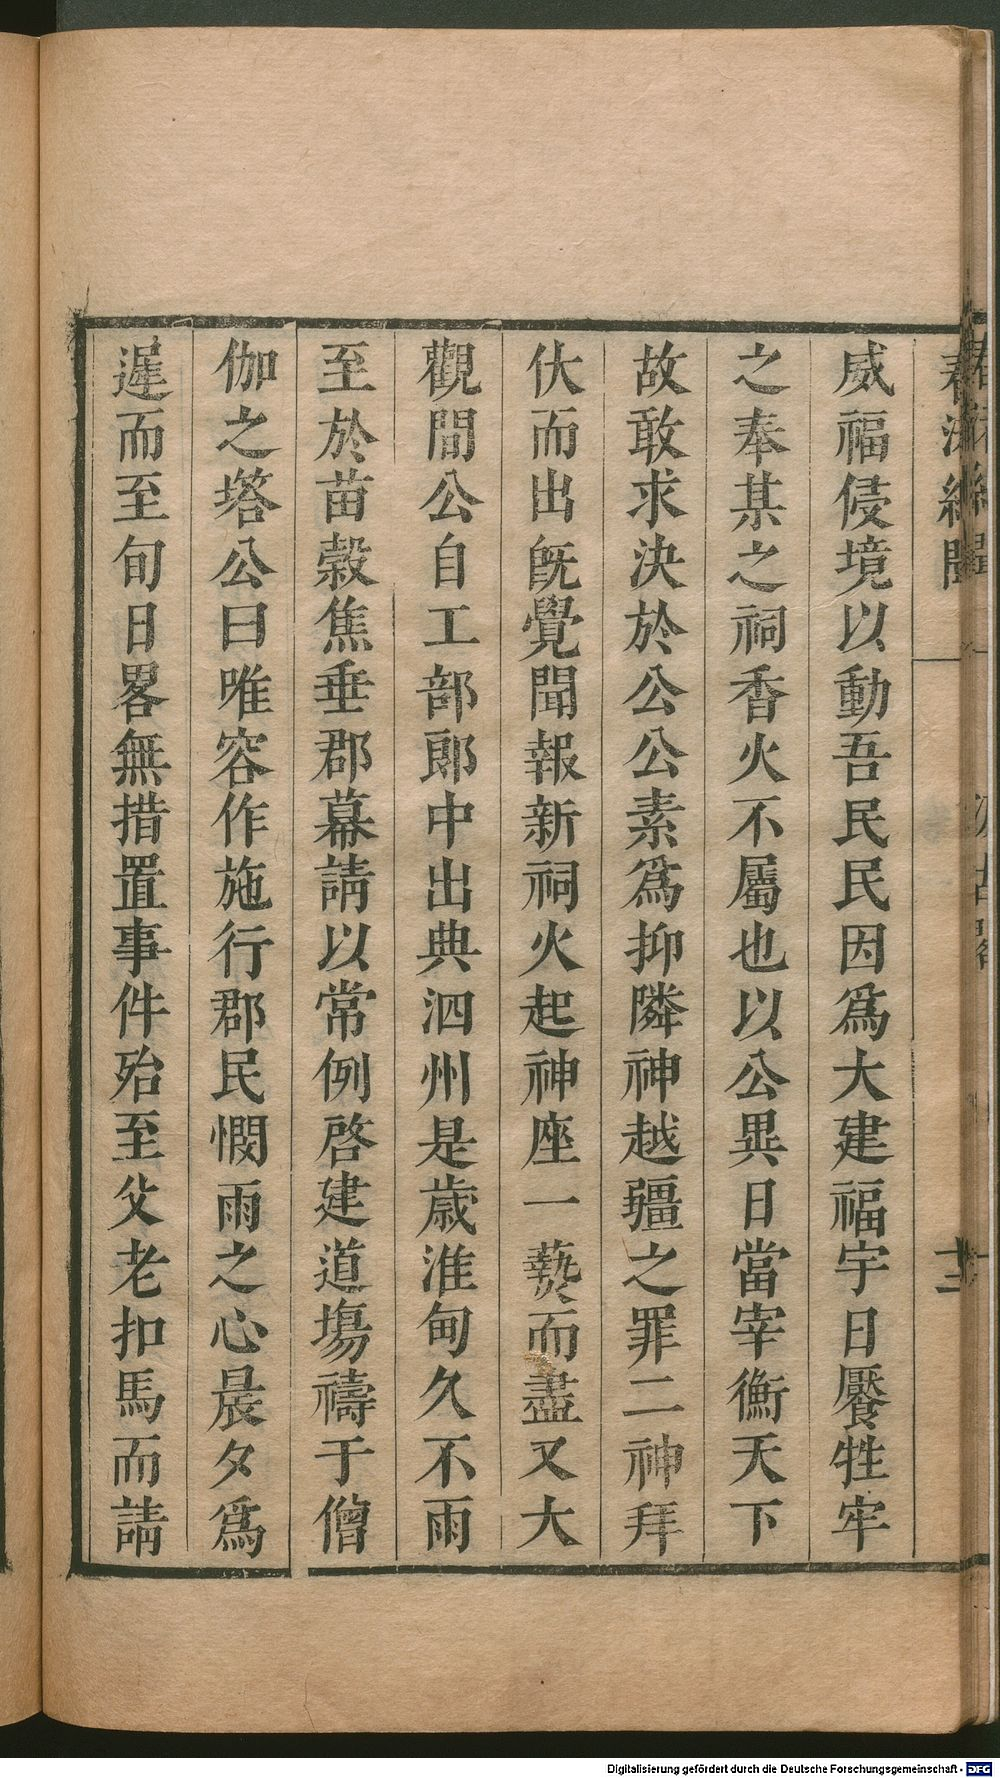 春渚紀聞
威福侵境以動吾民民因爲大建福宇日饜牲牢
之奉某之祠香火不屬也以公異日當宰衡天下
故敢求決於公公素爲抑隣神越疆之罪二神拜
伏而出旣覺聞報新祠火起神座一爇而盡又大
觀間公自工部郞中出典泗州是歲淮甸久不雨
至於苗穀焦垂郡幕請以常例啓建道塲禱于僧
伽之塔公曰唯容作施行郡民憫雨之心晨夕爲
遲而至旬日畧無措置事件殆至父老扣馬而請
Digitalisierung gefördert durch die Deutsche Forschungsgemeinschaft - DFG